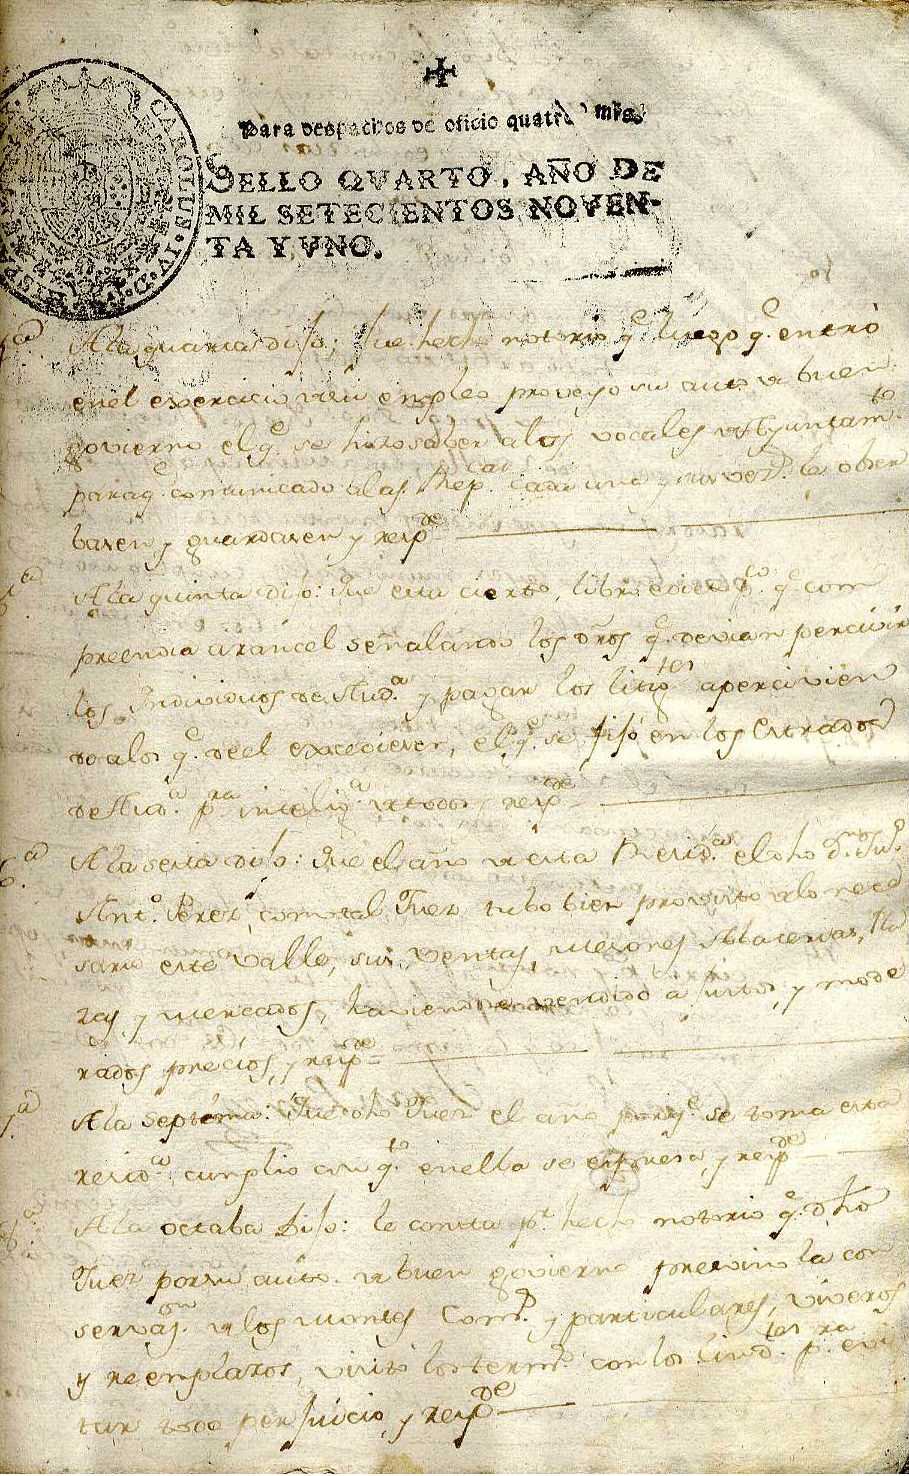 Para despachos de oficio quatro mrs.
SELLO QVARTO, AÑO DE
MIL SETECIENTOS NOVEN-
TA Y VNO.
CAROLUS IV D. G. HISPAN
4ª A la quarta dijo: que hecho notorio qe luego qe entró
en el exercicio de su empleo proveyo su auto de buen
govierno el qe se hizo saver a los vocales de Ayuntamto
para qe comunicado a las Repcas cada uno y su vezd la obser
basen y guardasen y respde
5ª A la quinta dijo: Que esta cierto, libro edicto qe com
preendia arancel señalando los dros qe devian percivir
los Individuos de Auda y pagar los litigtes apercivien
do a los qe de el excedieren, el qe se fijó en los Estrados
de Auda pra inteliga de todos y respde
6ª A la sesta dijo: Que el año de esta Resida el dho dn Jun
Anto Perez, como tal Juez tubo bien provisto de lo nece
sario este Valle, sus Ventas, mesones Abacerias, Pla
zas y mercados, haviendose vendido a justos y mode
rados precios, y respde
7ª A la septima: Que dho Sor Juez el año porqe se toma esta
resida cumplio con qto en ella se espresa, y respde
8ª A la octaba Dijo: le consta pr hecho notorio qe dho
Juez por su auto de buen govierno previno la con
servaon de los montes Coms y particulares, viveros
y reemplazos, visitó los termos con los lindtes pra evi
tar todo perjuicio, y respde